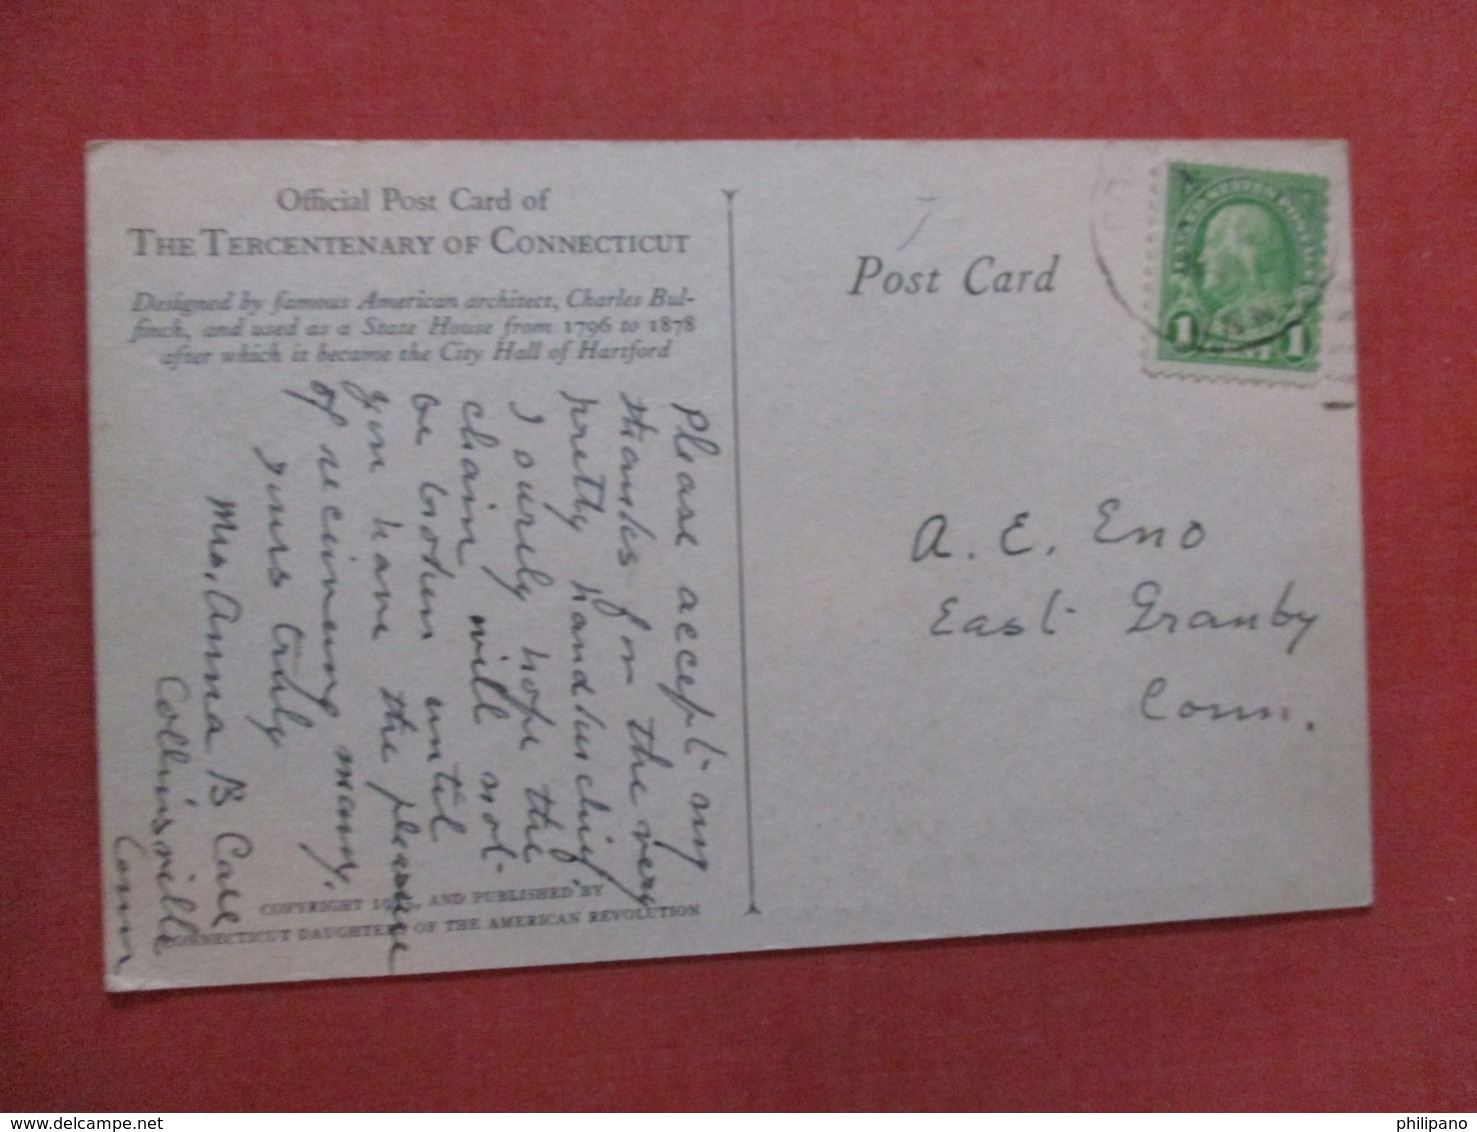 Official Post Card of
THE TERCENTENARY OF CONNECTICUT
Designed by famous American architect, Charles Bul-
finch, and used as a State House from 1796 to 1878
after which it became the City Hall of Hartford
Please accept my
thanks for the very
pretty handkerchief,
I surely hope the
chain will not
be broken until
you have the pleasure
of receiveing many.
yours truly
Mrs. Anna B
Collinsville
Conn
COPYRIGHT AND PUBLISHED BY
CONNECTICUT DAUGHTERS OF THE AMERICAN REVOLUTION
Post Card
1 1
A. E. Eno
East Granby
Conn.
philipano